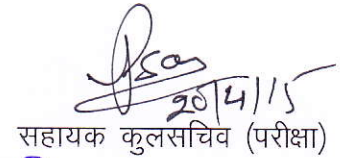 20/4/15
सहायक कुलसचिव (परीक्षा)